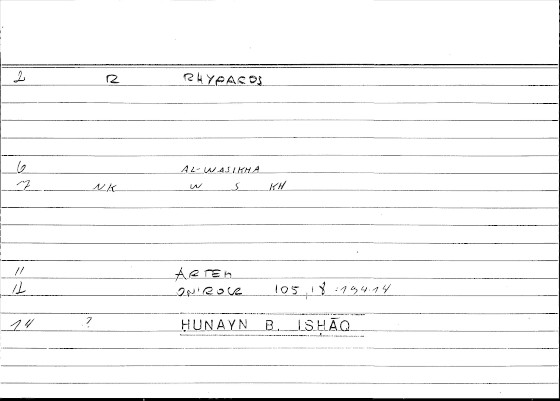 2 R RHYPAROS
6 AL-WASIKHA
7 NK W S KH
11 ARTEM
12 ONIROCR 105,18 : 194.14
14 ? ḤUNAYN B. ISḤĀQ